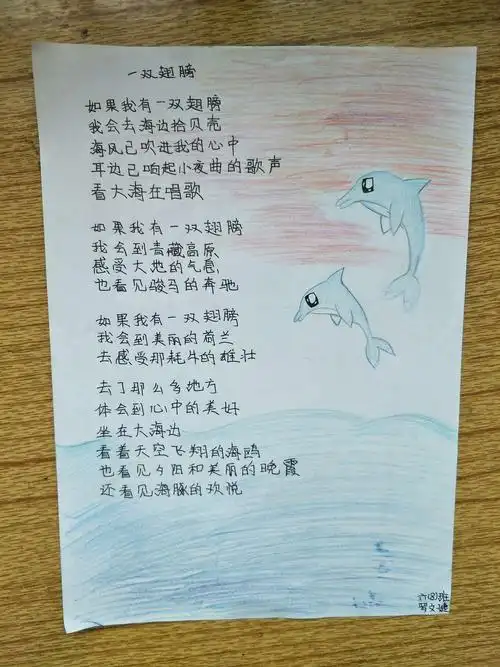 一双翅膀
如果我有一双翅膀
我会去海边拾贝壳
海风已吹进我的心中
耳边已响起小夜曲的歌声
看大海在唱歌
如果我有一双翅膀
我会到青藏高原
感受大地的气息
也看见骏马的奔驰
如果我有一双翅膀
我会到美丽的荷兰
去感受那牦牛的雄壮
去了那么多地方
体会到心中的美好
坐在大海边
看着天空飞翔的海鸥
也看见夕阳和美丽的晚霞
还看见海豚的欢悦
(8)班